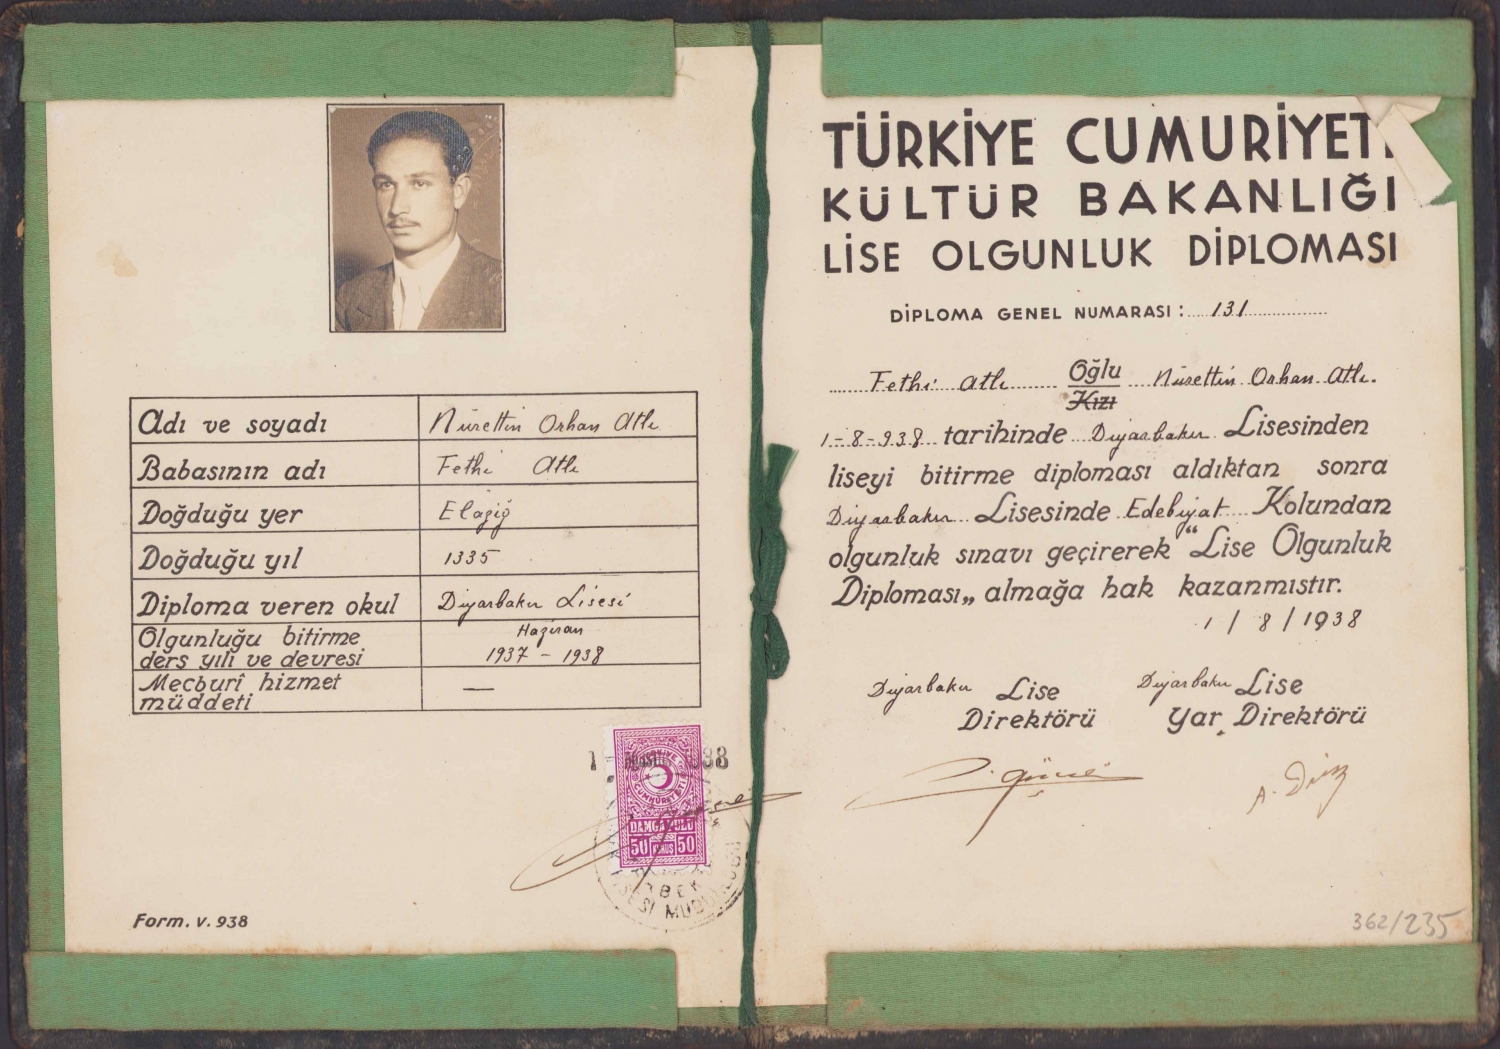 Adı ve soyadı Nurettin Orhan Atlı
Babasının adı Fethi Atlı
Doğduğu yer Elazığ
Doğduğu yıl 1335
Diploma veren okul Diyarbakır Lisesi
Olgunluğu bitirme Haziran
ders yılı ve devresi 1937 - 1938
Mecburî hizmet —
müddeti
TÜRKİYE
CUMHURİYETİ
DAMGA PULU
50 KURUŞ 50
Form. v. 938
TÜRKİYE CUMURİYETİ
KÜLTÜR BAKANLIĞI
LİSE OLGUNLUK DİPLOMASI
DİPLOMA GENEL NUMARASI : 131
Fethi Atlı Oğlu Nurettin Orhan Atlı.
Kızı
1-8-938 tarihinde Diyarbakır Lisesinden
liseyi bitirme diploması aldıktan sonra
Diyarbakır Lisesinde Edebiyat Kolundan
olgunluk sınavı geçirerek “Lise Olgunluk
Diploması„ almağa hak kazanmıstır.
1 / 8 / 1938
Diyarbakır Lise Diyarbakır Lise
Direktörü Yar. Direktörü
362/235